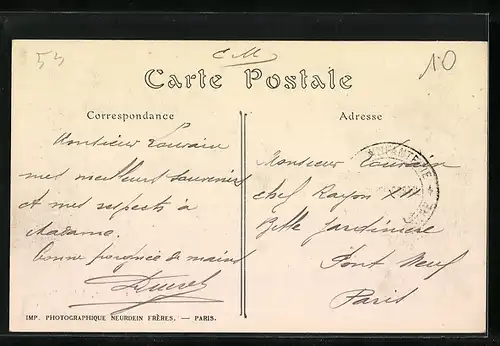 53
C M
10
Carte Postale
Correspondance
Monsieur Louvain
mes meilleurs souvenirs
et mes respects à
Madame.
bonne poignée de mains
Adresse
INFANTERIE
Monsieur Louvain
chef Rayon XIII
Belle Jardinière
Pont Neuf
Paris
IMP. PHOTOGRAPHIQUE NEURDEIN FRÈRES. — PARIS.